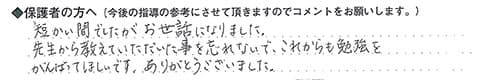 ◆保護者の方へ（今後の指導の参考にさせて頂きますのでコメントをお願いします。）
短かい間でしたがお世話になりました。
先生から教えていただいた事を忘れないで、これからも勉強を
がんばってほしいです。ありがとうございました。